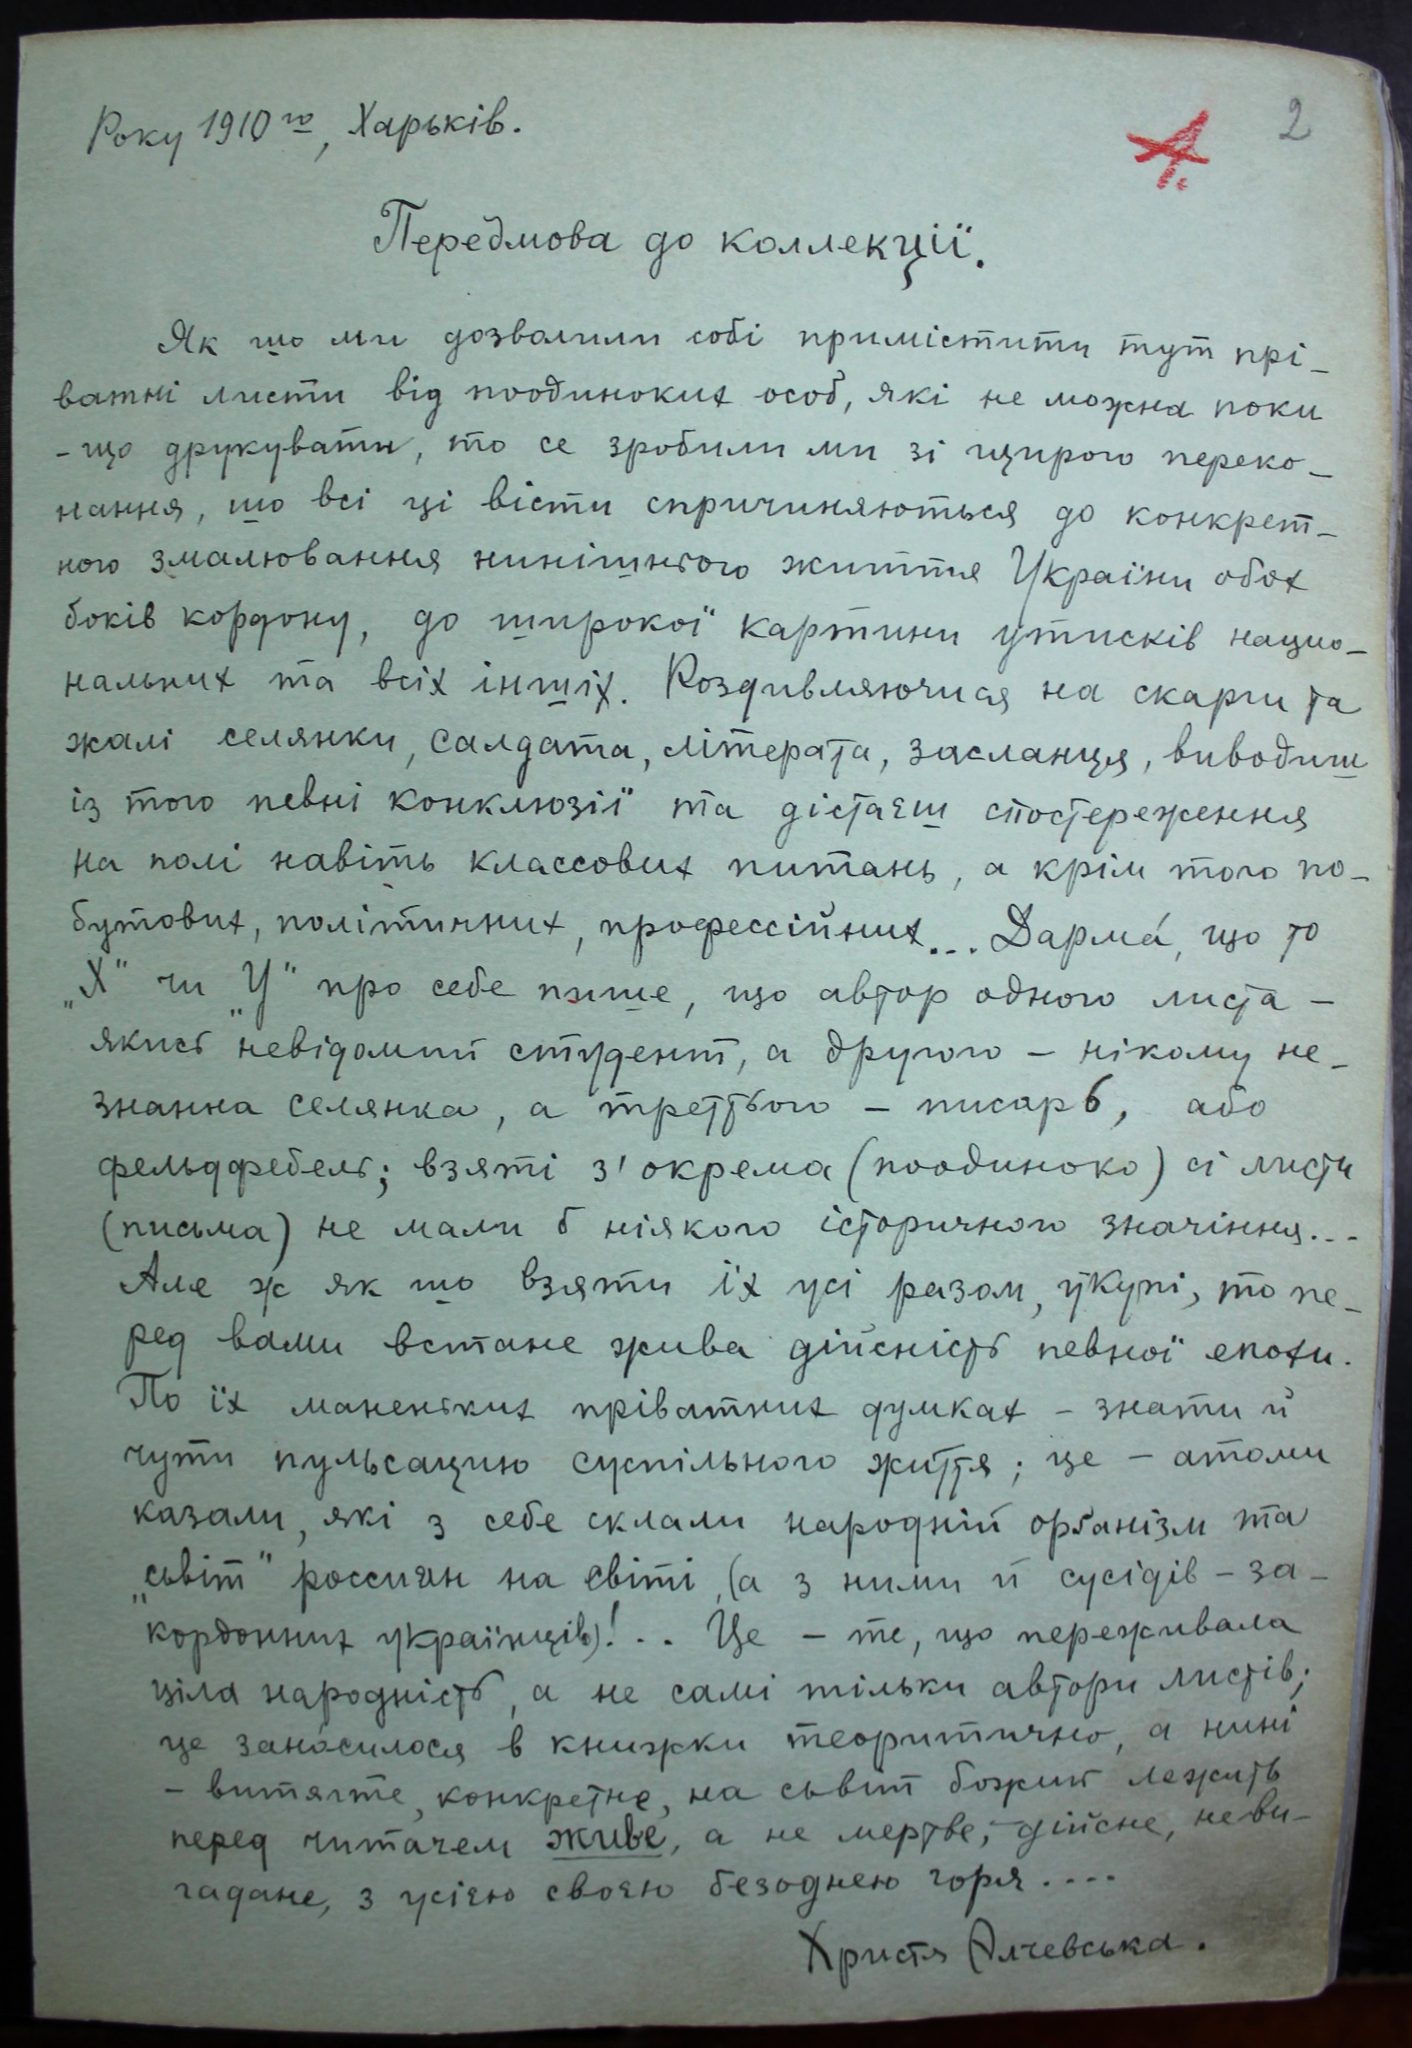 2
Року 1910го, Харьків.
Передмова до коллекції.
Як що ми дозволили собі примістити тут прі-
ватні листи від поодиноких особ, які не можна поки
-що друкувати, то се зробили ми зі щирого переко-
нання, що всі ці вісти спричиняються до конкрет-
ного змалювання нинішнього життя України обох
боків кордону, до широкої картини утисків націо-
нальних та всіх інших. Роздивляючися на скарги та
жалі селянки, салдата, літерата, засланця, виводиш
із того певні конклюзії та дістаєш спостереження
на полі навіть классових питань, а крім того по-
бутових, політичних, профессійних... Дарма́, що то
„X" чи „У" про себе пише, що автор одного листа –
якись невідомий студент, а другого – нікому не-
знанна селянка, а треттього – писарь, або
фельдфебель; взяті з'окрема (поодиноко) сі листи
(письма) не мали б ніякого історичного значіння...
Але ж як що взяти їх усі разом, укупі, то пе-
ред вами встане жива дійсність певної епохи.
По їх маненьких пріватних думках – знати й
чути пульсацию суспільного життя; це – атоми
казали, які з себе склали народній орґанізм та
„сьвіт" россиян на світі, (а з ними й сусідів – за-
кордонних українців)!.. Це – те, що переживала
ціла народність, а не самі тільки автори листів;
це заносилося в книжки теоритично, а нині
– витягте, конкретне, на сьвіт божий лежить
перед читачем живе, а не мертве, дійсне, неви-
гадане, з усією своєю безоднею горя....
Христя Алчевська.